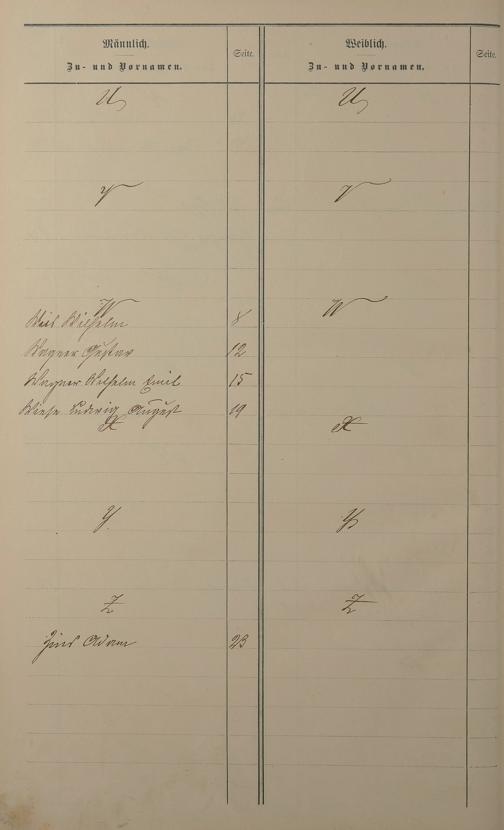 Männlich.
Zu- und Vornamen.
Seite.
Weiblich.
Zu- und Vornamen.
Seite.
U
U
V
V
W
W
Weis Wilhelm 8
Wagner Gustav 12
Wagner Wilhelm Emil 15
Wiese Ludwig August 19
X
X
Y
Y
Z
Z
Zins Adam 23